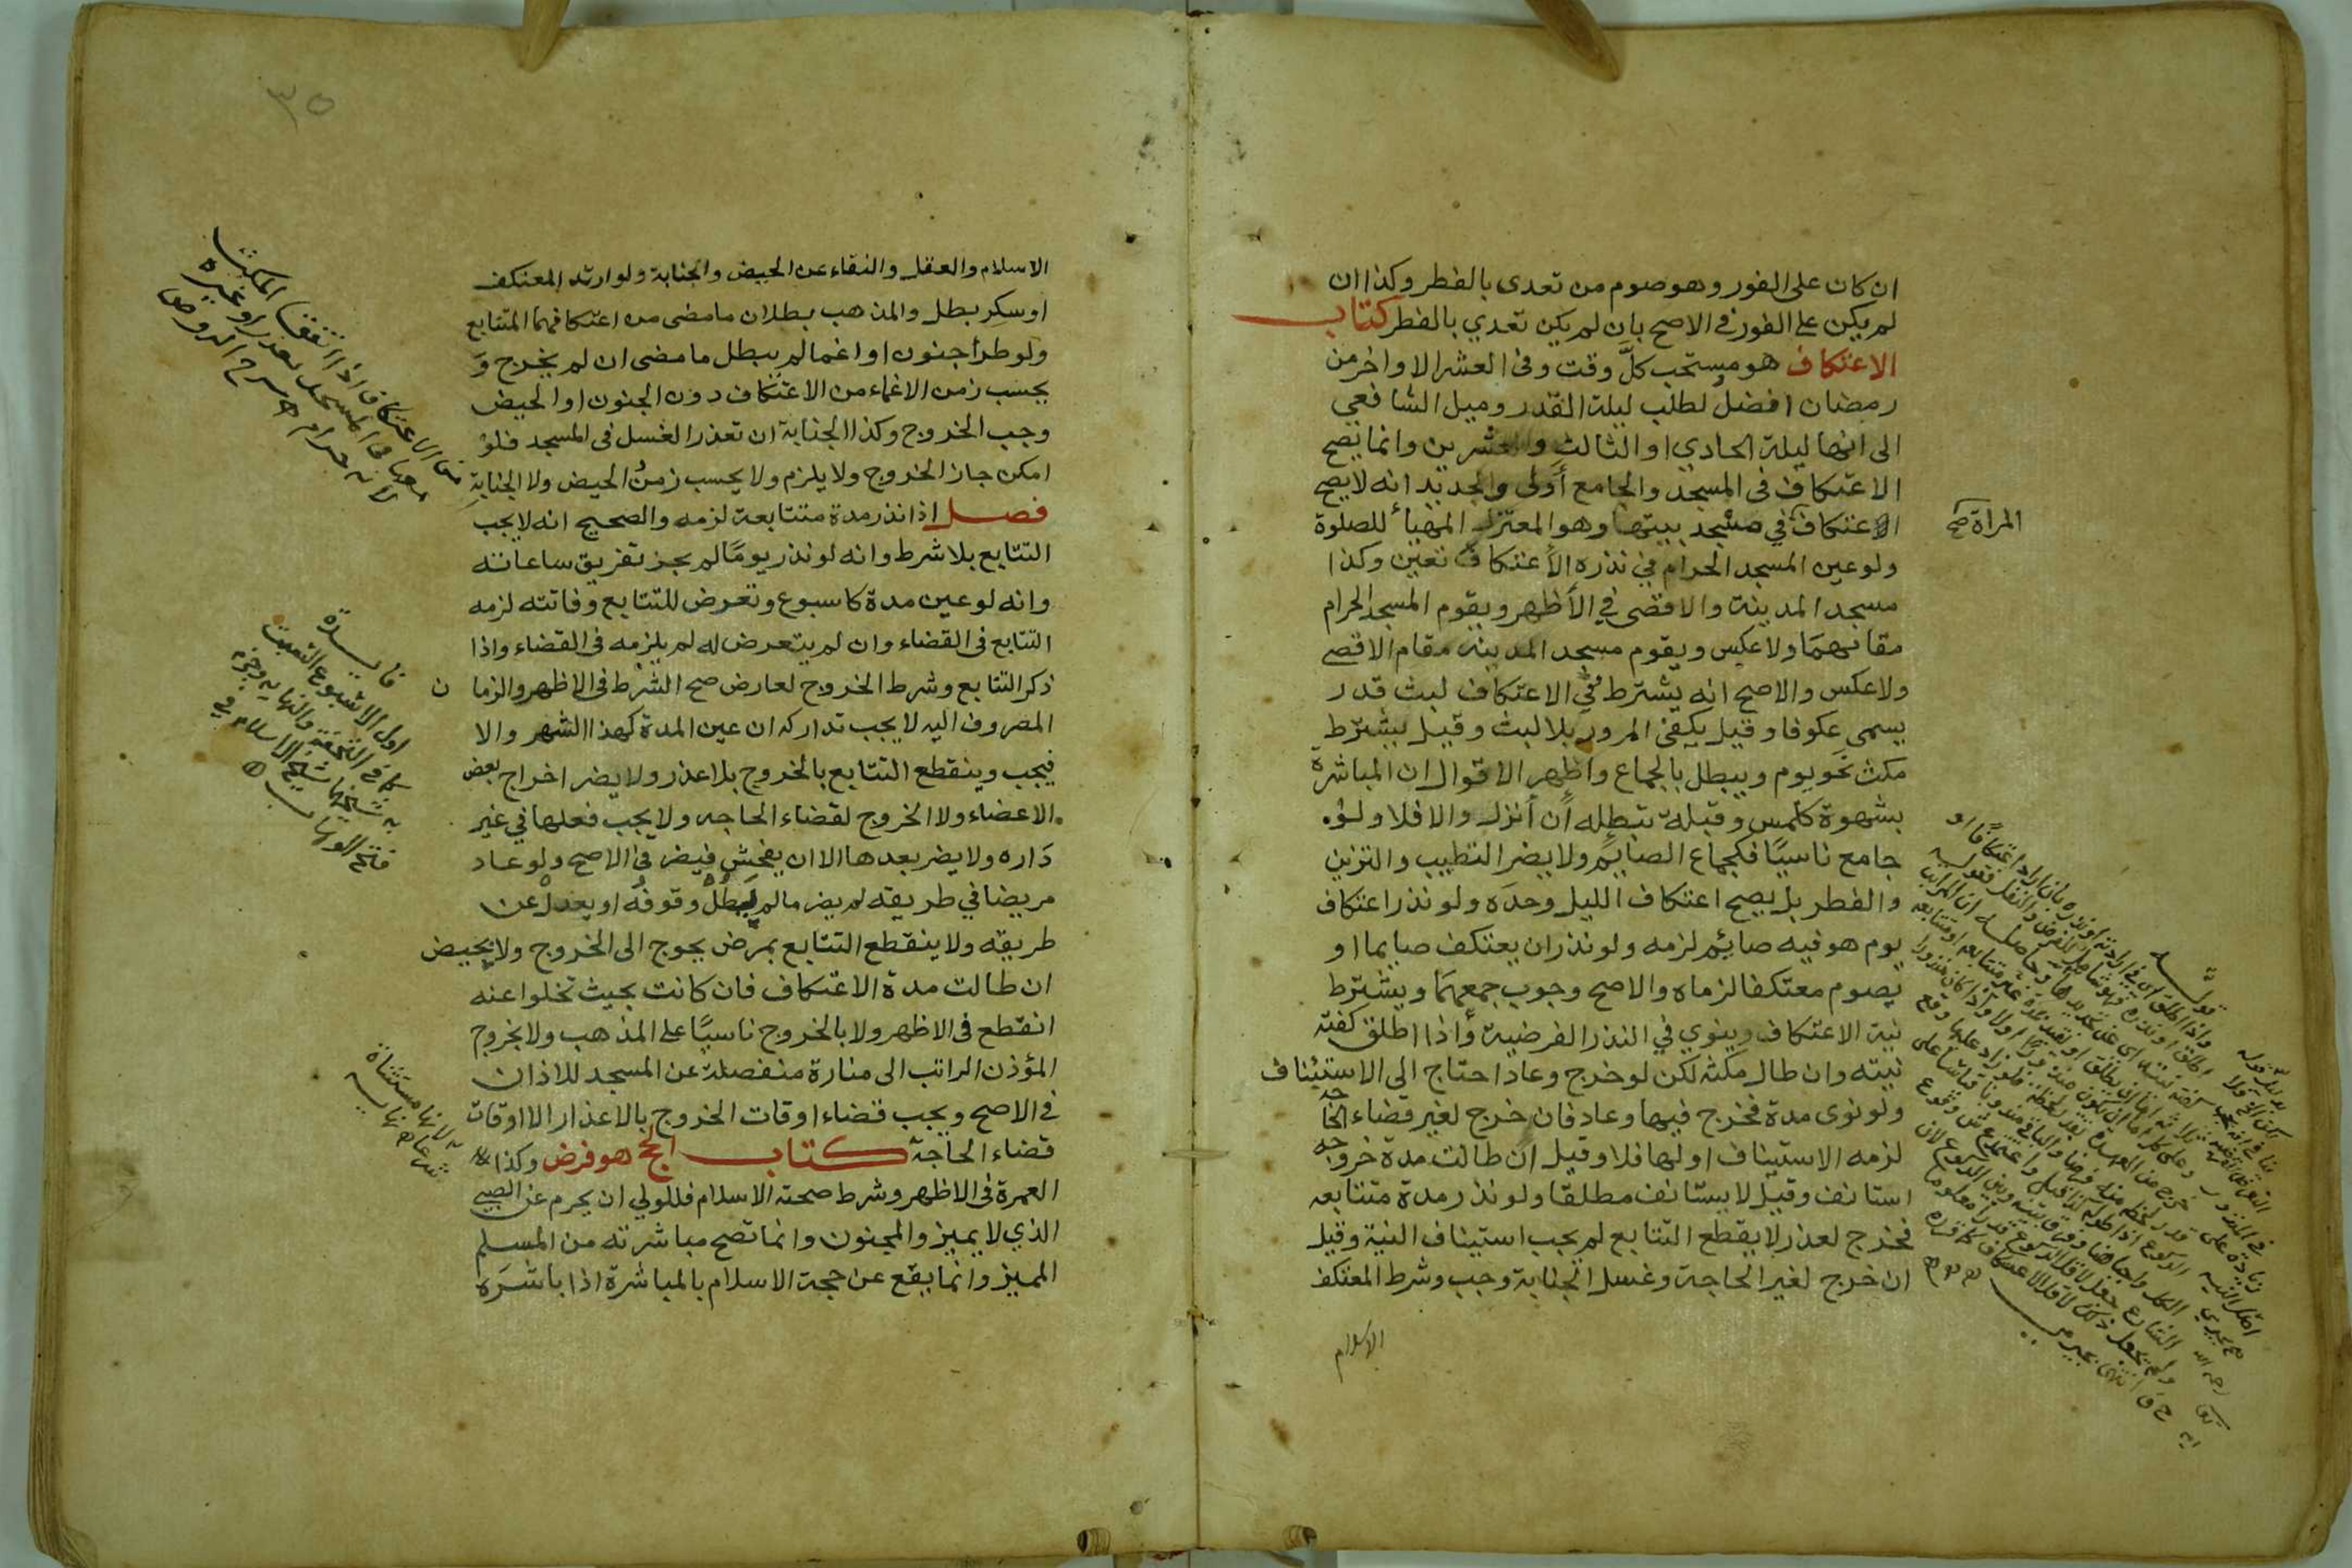 ان كان على الفور وهو صوم من تعدى بالفطر وكذا ان
لم يكن على الفور في الاصح بان لم يكن تعدي بالفطر كتاب
الاعتكاف هو مستحب كلَّ وقت وفى العشر الاواخر من
رمضان افضل لطلب ليلة القدر وميل الشافعي
الى انها ليلة الحادي او الثالث والعشرين وانما يصح
الاعتكاف فى المسجد والجامع أولى والجديد انه لايصح
الاعتكاف في مسجد بيتها وهو المعتزل المهيأ للصلوة
المراة صح
ولو عين المسجد الحرام في نذره الأعتكاف تعين وكذا
مسجد المدينة والاقصى في الأظهر ويقوم المسجد الحرام
مقامهما ولا عكس ويقوم مسجد المدينة مقام الاقصى
ولاعكس والاصح انه يشترط في الاعتكاف لبث قدر
يسمى عكوفا وقيل يكفى المرور بلا لبث وقيل يشترط
مكث نحو يوم ويبطل بالجماع واظهر الاقوال ان المباشرة
بشهوة كلمس وقبلة تبطله أن أنزل والا فلا ولو
جامع ناسيًا فكجماع الصايم ولا يضر التطيب والتزين
والفطر بل يصح اعتكاف الليل وحدَه ولو نذر اعتكاف
يوم هو فيه صايم لزمه ولو نذر ان يعتكف صايما او
يصوم معتكفا لزماه والاصح وجوب جمعهما ويشترط
نية الاعتكاف وينوي في النذر الفرضية وأذا اطلق كفته
نيته وان طال مكثه لكن لو خرج وعاد احتاج الى الاستيناف
ولو نوى مدة فخرج فيها وعاد فان خرج لغير قضاء الحاجه
لزمه الاستيناف او لها فلا وقيل ان طالت مدة خروجه
استانف وقيل لا يستانف مطلقا ولو نذر مدة متتابعه
فخرج لعذر لا يقطع التتابع لم يجب استيناف النية وقيل
ان خرج لغير الحاجة وغسل الجنابة وجب وشرط المعتكف
الاسلام
٣٥
الاسلام والعقل والنقاء عن الحيض والجنابة ولو ارتد المعتكف
او سكر بطل والمذهب بطلان ما مضى من اعتكافهما المتتابع
ولو طرأ جنون او اغما لم يبطل ما مضى ان لم يخرج وَ
يحسب زمن الاغماء من الاعتكاف دون الجنون او الحيض
وجب الخروج وكذا الجنابة ان تعذر الغسل فى المسجد فلو
امكن جاز الخروج ولا يلزم ولا يحسب زمن الحيض ولا الجنابة
فصل اذا نذر مدة متتابعة لزمه والصحيح انه لايجب
التتابع بلا شرط وانه لو نذر يومًا لم يجز تفريق ساعاته
وانه لو عين مدة كاسبوع وتعرض للتتابع وفاتته لزمه
التتابع فى القضاء وان لم يتعرض له لم يلزمه فى القضاء واذا
ذكر التتابع وشرط الخروج لعارض صح الشرط فى الاظهر والزما ن
المصروف اليه لا يجب تداركه ان عين المدة كهذا الشهر والا
فيجب وينقطع التتابع بالخروج بلا عذر ولا يضر اخراج بعض
الاعضاء ولا الخروج لقضاء الحاجه ولا يجب فعلها في غير
دَاره ولا يضر بعدها الا ان يفحش فيضر فى الاصح ولو عاد
مريضا في طريقه لم يضر ما لم يطل وقوفُه او يعدل عن
طريقه ولا ينقطع التتابع بمرض يحوج الى الخروج ولا بحيض
ان طالت مدة الاعتكاف فان كانت بحيث تخلوا عنه
انقطع فى الاظهر ولا بالخروج ناسيًا على المذهب ولا بخروج
المؤذن الراتب الى منارة منفصلة عن المسجد للاذان
فى الاصح ويجب قضاء اوقات الخروج بالاعذار الا اوقات
قضاء الحاجة كتاب الحج هو فرض وكذا
العمرة فى الاظهر وشرط صحته الاسلام فللولي ان يحرم عن الصبي
الذي لا يميز والمجنون وانما تصح مباشرته من المسلم
المميز وانما يقع عن حجة الاسلام بالمباشرة اذا باشرَه
فايدة
اول الاسبوع السبت
لانها مستثناة